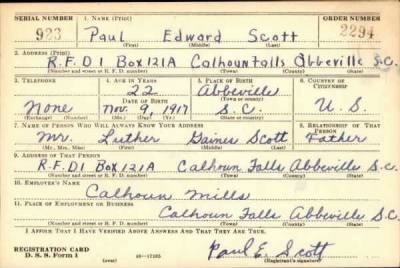 SERIAL NUMBER 1. NAME (Print) ORDER NUMBER
923 Paul Edward Scott 2294
(First) (Middle) (Last)
2. ADDRESS (Print)
R.F.D 1 Box 121A Calhoun Falls Abbeville S.C.
(Number and street or R. F. D. number) (Town) (County) (State)
3. TELEPHONE 4. AGE IN YEARS 5. PLACE OF BIRTH 6. COUNTRY OF CITIZENSHIP
22 Abbeville
DATE OF BIRTH (Town or county)
None Nov. 9, 1917 S.C. U.S.
(Exchange) (Number) (Mo.) (Day) (Yr.) (State or country)
7. NAME OF PERSON WHO WILL ALWAYS KNOW YOUR ADDRESS 8. RELATIONSHIP OF THAT PERSON
Mr. Luther Gaines Scott Father
(Mr., Mrs., Miss) (First) (Middle) (Last)
9. ADDRESS OF THAT PERSON
R.F.D1 Box 121A Calhoun Falls Abbeville S.C.
(Number and street or R. F. D. number) (Town) (County) (State)
10. EMPLOYER'S NAME
Calhoun Mills
11. PLACE OF EMPLOYMENT OR BUSINESS
Calhoun Falls Abbeville S.C.
(Number and street or R. F. D. number) (Town) (County) (State)
I AFFIRM THAT I HAVE VERIFIED ABOVE ANSWERS AND THAT THEY ARE TRUE.
REGISTRATION CARD
D. S. S. Form 1 (over) 16—17105 Paul E. Scott
(Registrant's signature)